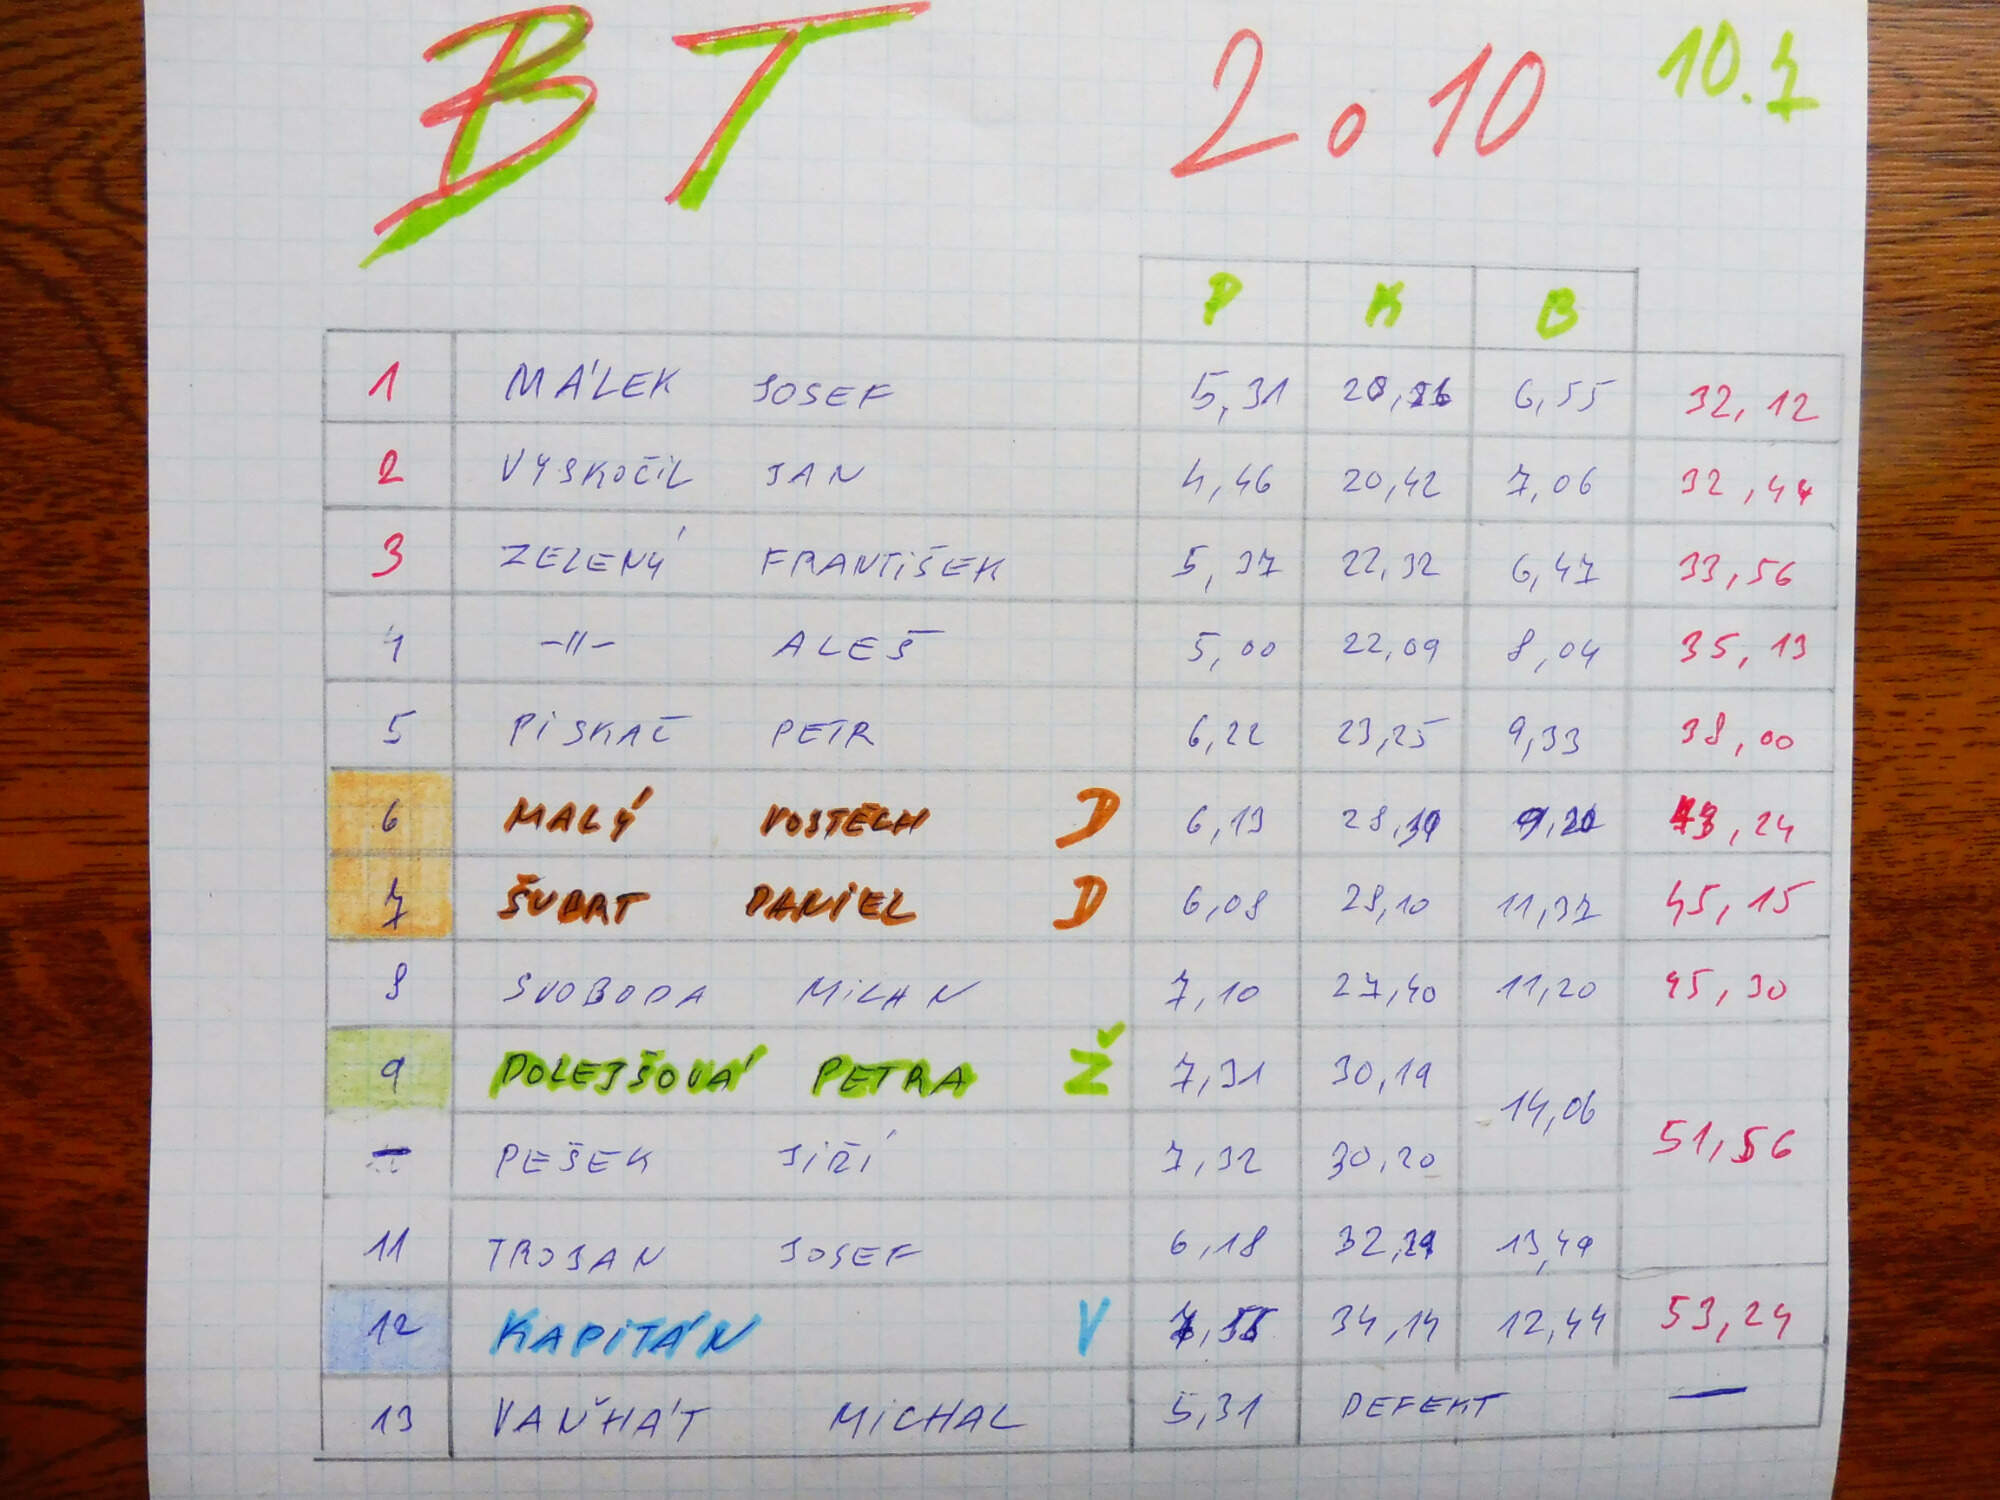 BT 2.10 10.7
P K B
1 MÁLEK JOSEF 5,31 20,26 6,55 32,12
2 VYSKOČIL JAN 4,46 20,42 7,06 32,44
3 ZELENÝ FRANTIŠEK 5,37 22,32 6,47 33,56
4 -||- ALEŠ 5,00 22,09 8,04 35,13
5 PISKAČ PETR 6,22 23,25 9,33 38,00
6 MALÝ VOJTĚCH D 6,13 28,39 9,20 43,24
7 ŠUBRT DANIEL D 6,08 28,10 11,37 45,15
8 SVOBODA MILAN 7,10 27,40 11,20 45,30
9 DOLEJŠOVÁ PETRA Ž 7,31 30,19 14,06 51,56
– PEŠEK JIŘÍ 7,32 30,20
11 TROJAN JOSEF 6,18 32,29 13,49
12 KAPITÁN V 34,14 12,44 53,24
13 VAŇHÁT MICHAL 5,31 DEFEKT —